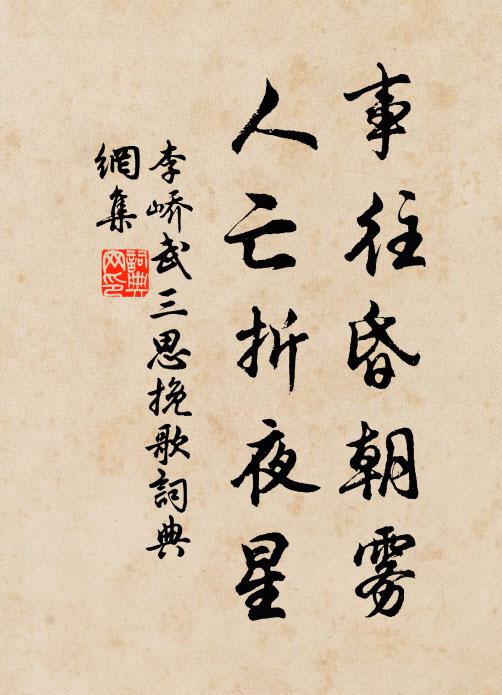 事往昏朝雾
人亡折夜星
李峤武三思挽歌詞典
網集
詞典网印